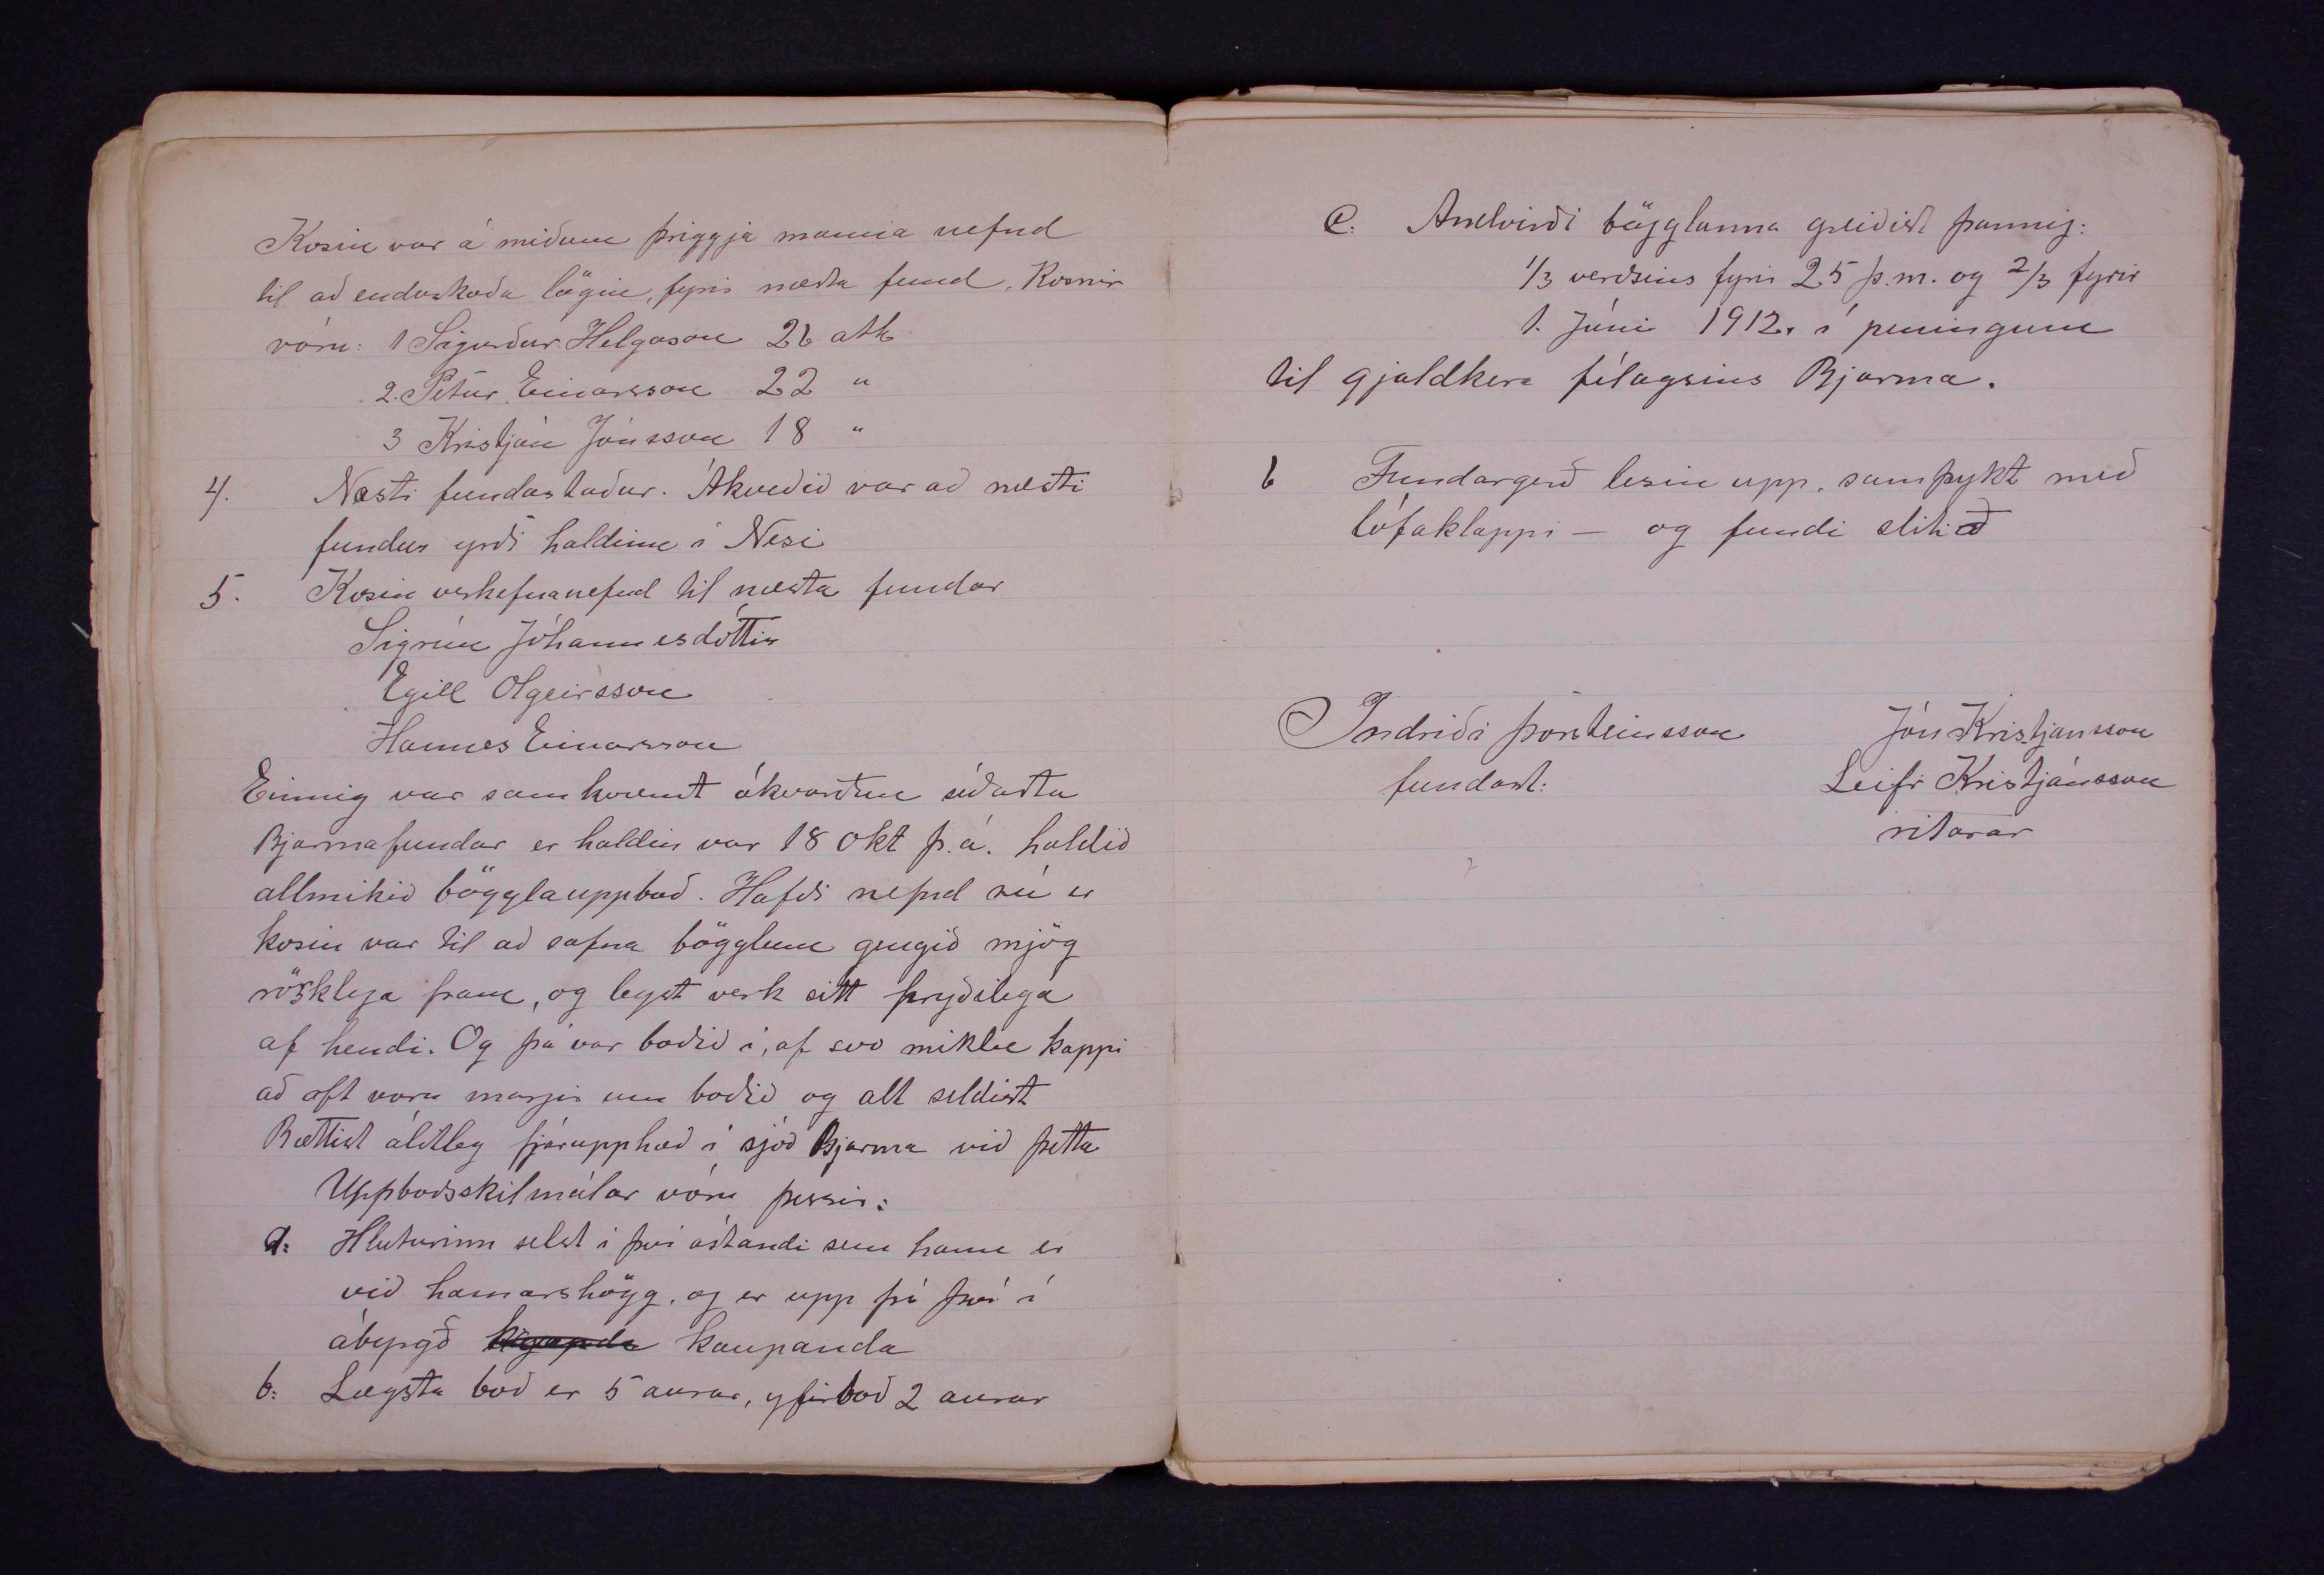 Kosin var á miðum þriggja manna nefnd
til að endurskoða lögin, fyrir næsta fund, Kosnir
vóru: 1 Sigurður Helgason 26 atk
2. Pétur Einarsson 22 "
3 Kristján Jónsson 18 "
4. Næsti fundarstaður. Ákveðið var að næsti
fundur yrði haldinn í Nesi
5. Kosin verkefnanefnd til næsta fundar
Sigrún Jóhannesdóttir
Egill Olgeirsson
Hannes Einarsson
Einnig var samkvæmt ákvörðun síðasta
Bjarmafundar er haldin var 18 okt þ.á. haldið
allmikið bögglauppboð. Hafði nefnd sú er
kosin var til að safna bögglum gengið mjög
rösklega fram, og leyst verk sitt prýðilega
af hendi. Og þá var boðið í, af svo miklu kappi
að oft voru margir um boðið og alt seldist
Bættist álitleg fjárupphæð í sjóð Bjarma við þetta
Uppboðsskilmálar vóru þessir:
a: Hluturinn selst í því ástandi sem hann er
við hamarshögg, og er upp frá því í
ábyrgð kaupanda
b: Lægsta boð er 5 aurar, yfirboð 2 aurar
C. Andvirði bögglanna greiðist þannig:
1/3 verðsins fyrir 25 þ.m. og 2/3 fyrir
1. Júni 1912. í peningum
til gjaldkera félagsins Bjarma.
6 Fundargerð lesin upp, samþykt með
lófaklappi — og fundi slitið
Indriði Þórsteinsson Jón Kristjánsson
fundarst: Leifr Kristjánsson
ritarar